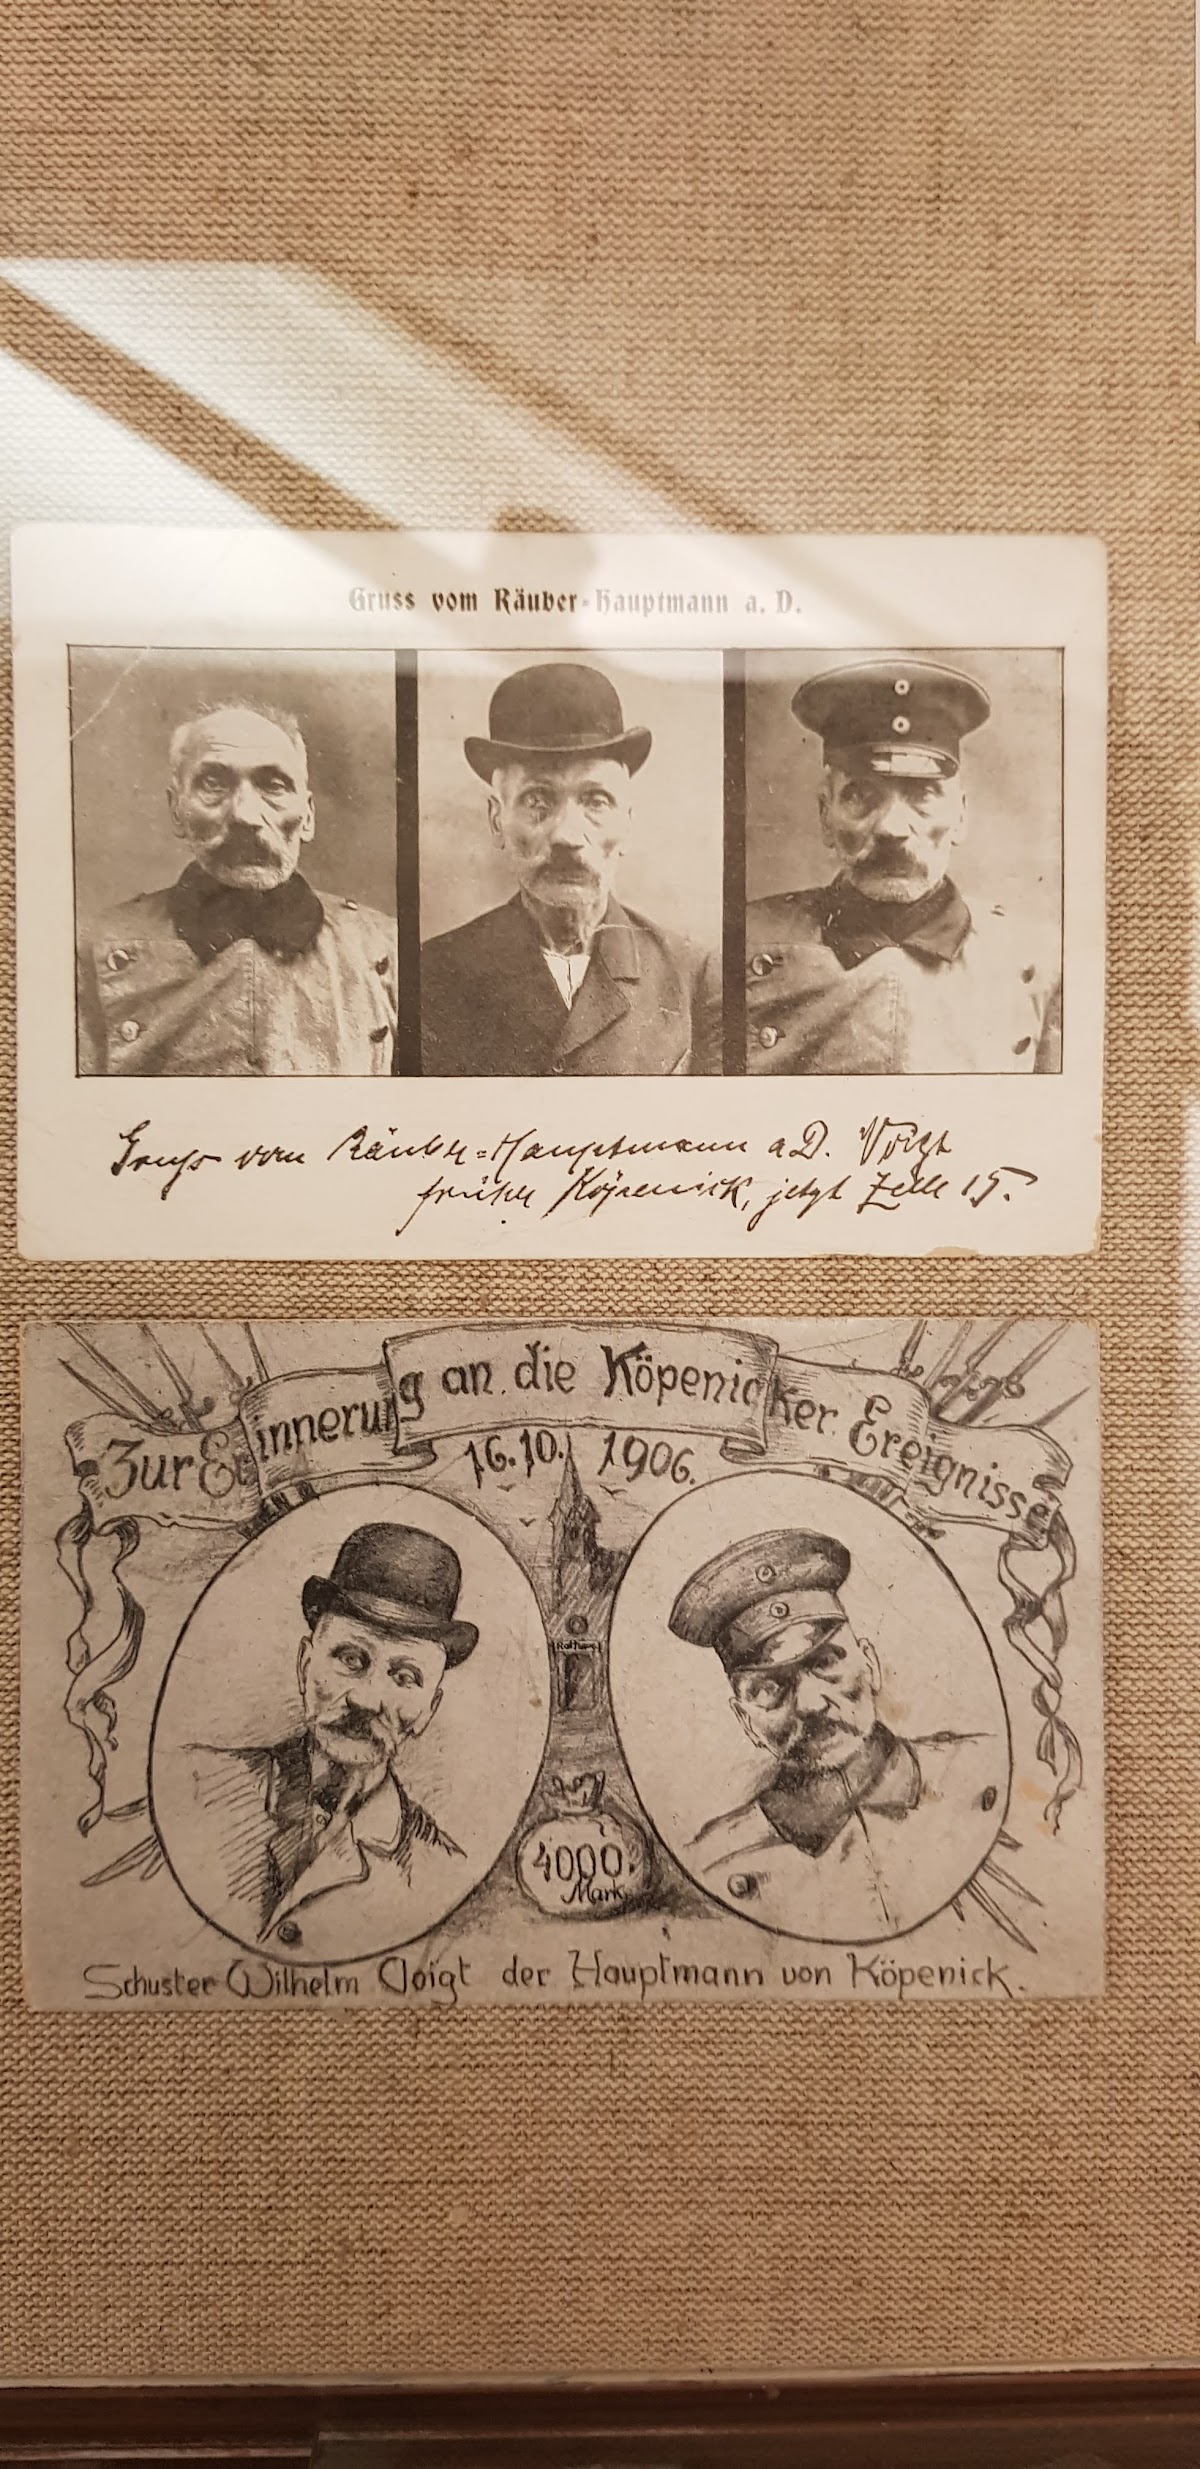 Gruss vom Räuber-Hauptmann a. D.
Gruss vom Räuber=Hauptmann a.D. Voigt
früher Köpenick, jetzt Zelle 15.
Zur Erinnerung an die Köpenicker Ereignisse
16.10. 1906.
Rathaus
4000.
Mark.
Schuster Wilhelm Voigt der Hauptmann von Köpenick.